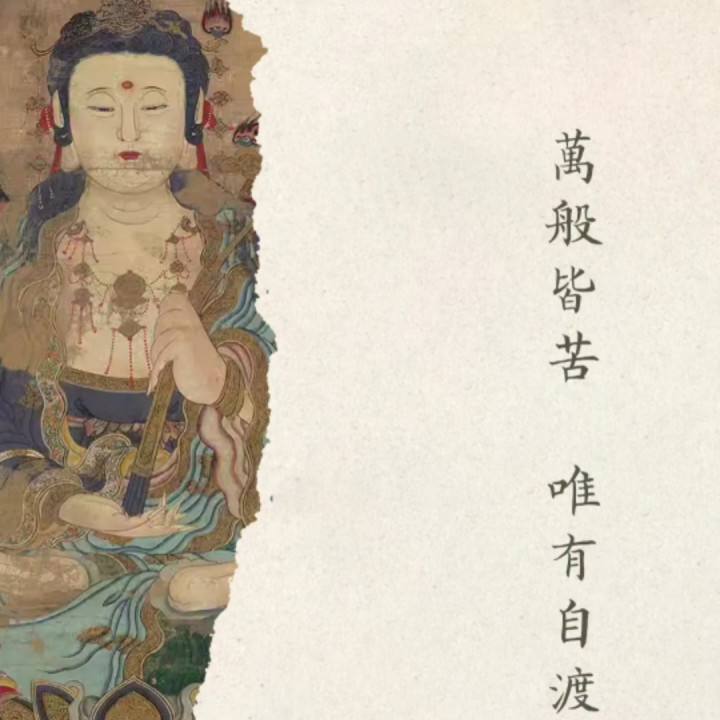 萬般皆苦 唯有自渡